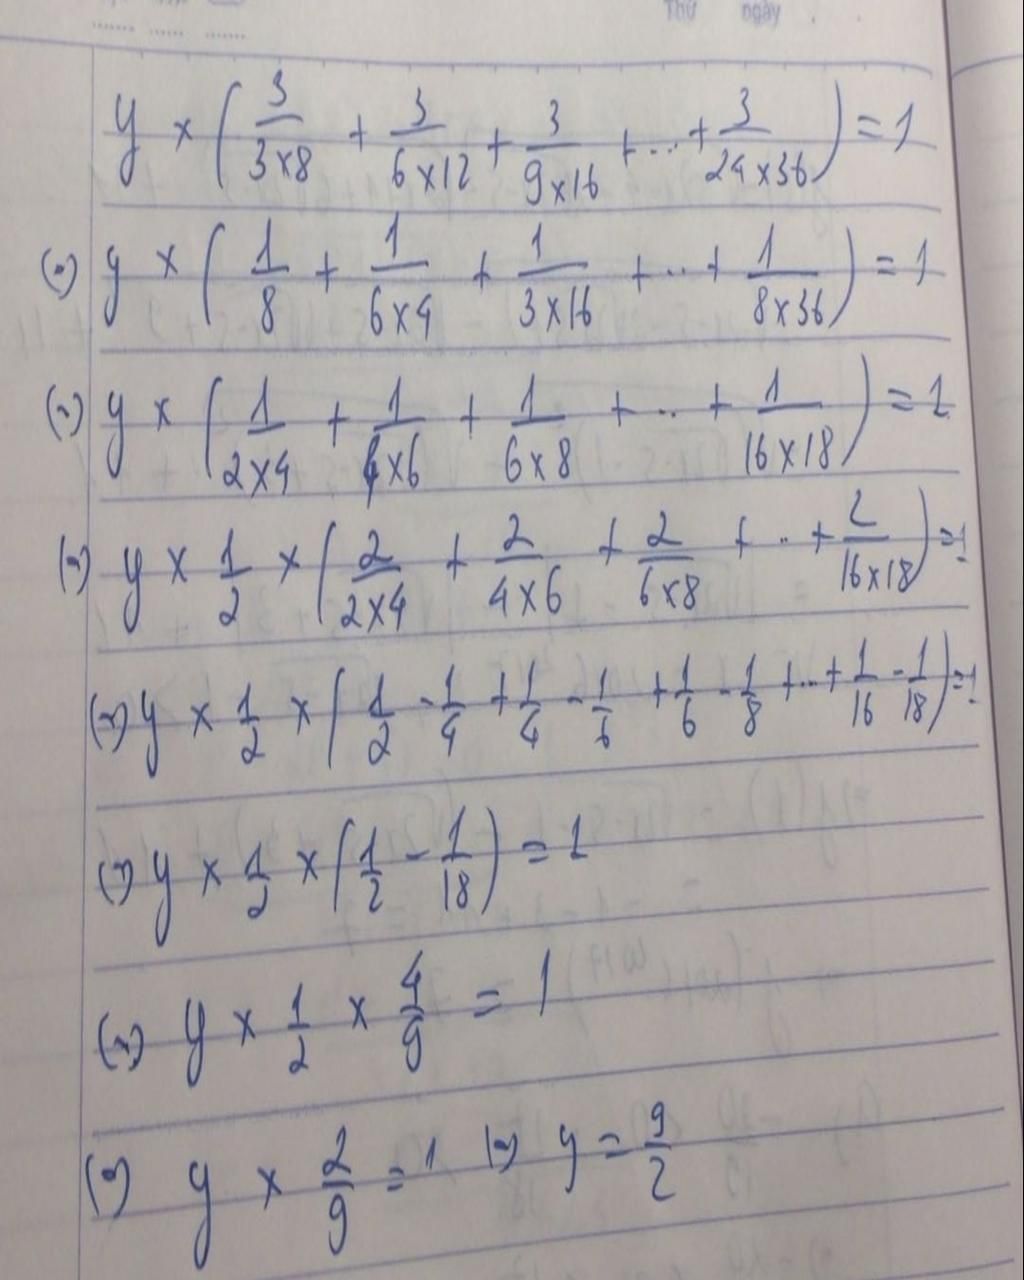 Thứ ngày . .
y × (3/(3×8) + 3/(6×12) + 3/(9×16) + ... + 3/(24×36)) = 1
(=) y × (1/8 + 1/(6×4) + 1/(3×16) + ... + 1/(8×36)) = 1
(=) y × (1/(2×4) + 1/(4×6) + 1/(6×8) + ... + 1/(16×18)) = 1
(=) y × 1/2 × (2/(2×4) + 2/(4×6) + 2/(6×8) + ... + 2/(16×18)) = 1
(=) y × 1/2 × (1/2 - 1/4 + 1/4 - 1/6 + 1/6 - 1/8 + ... + 1/16 - 1/18) = 1
(=) y × 1/2 × (1/2 - 1/18) = 1
(=) y × 1/2 × 4/9 = 1
(=) y × 2/9 = 1 (=) y = 9/2